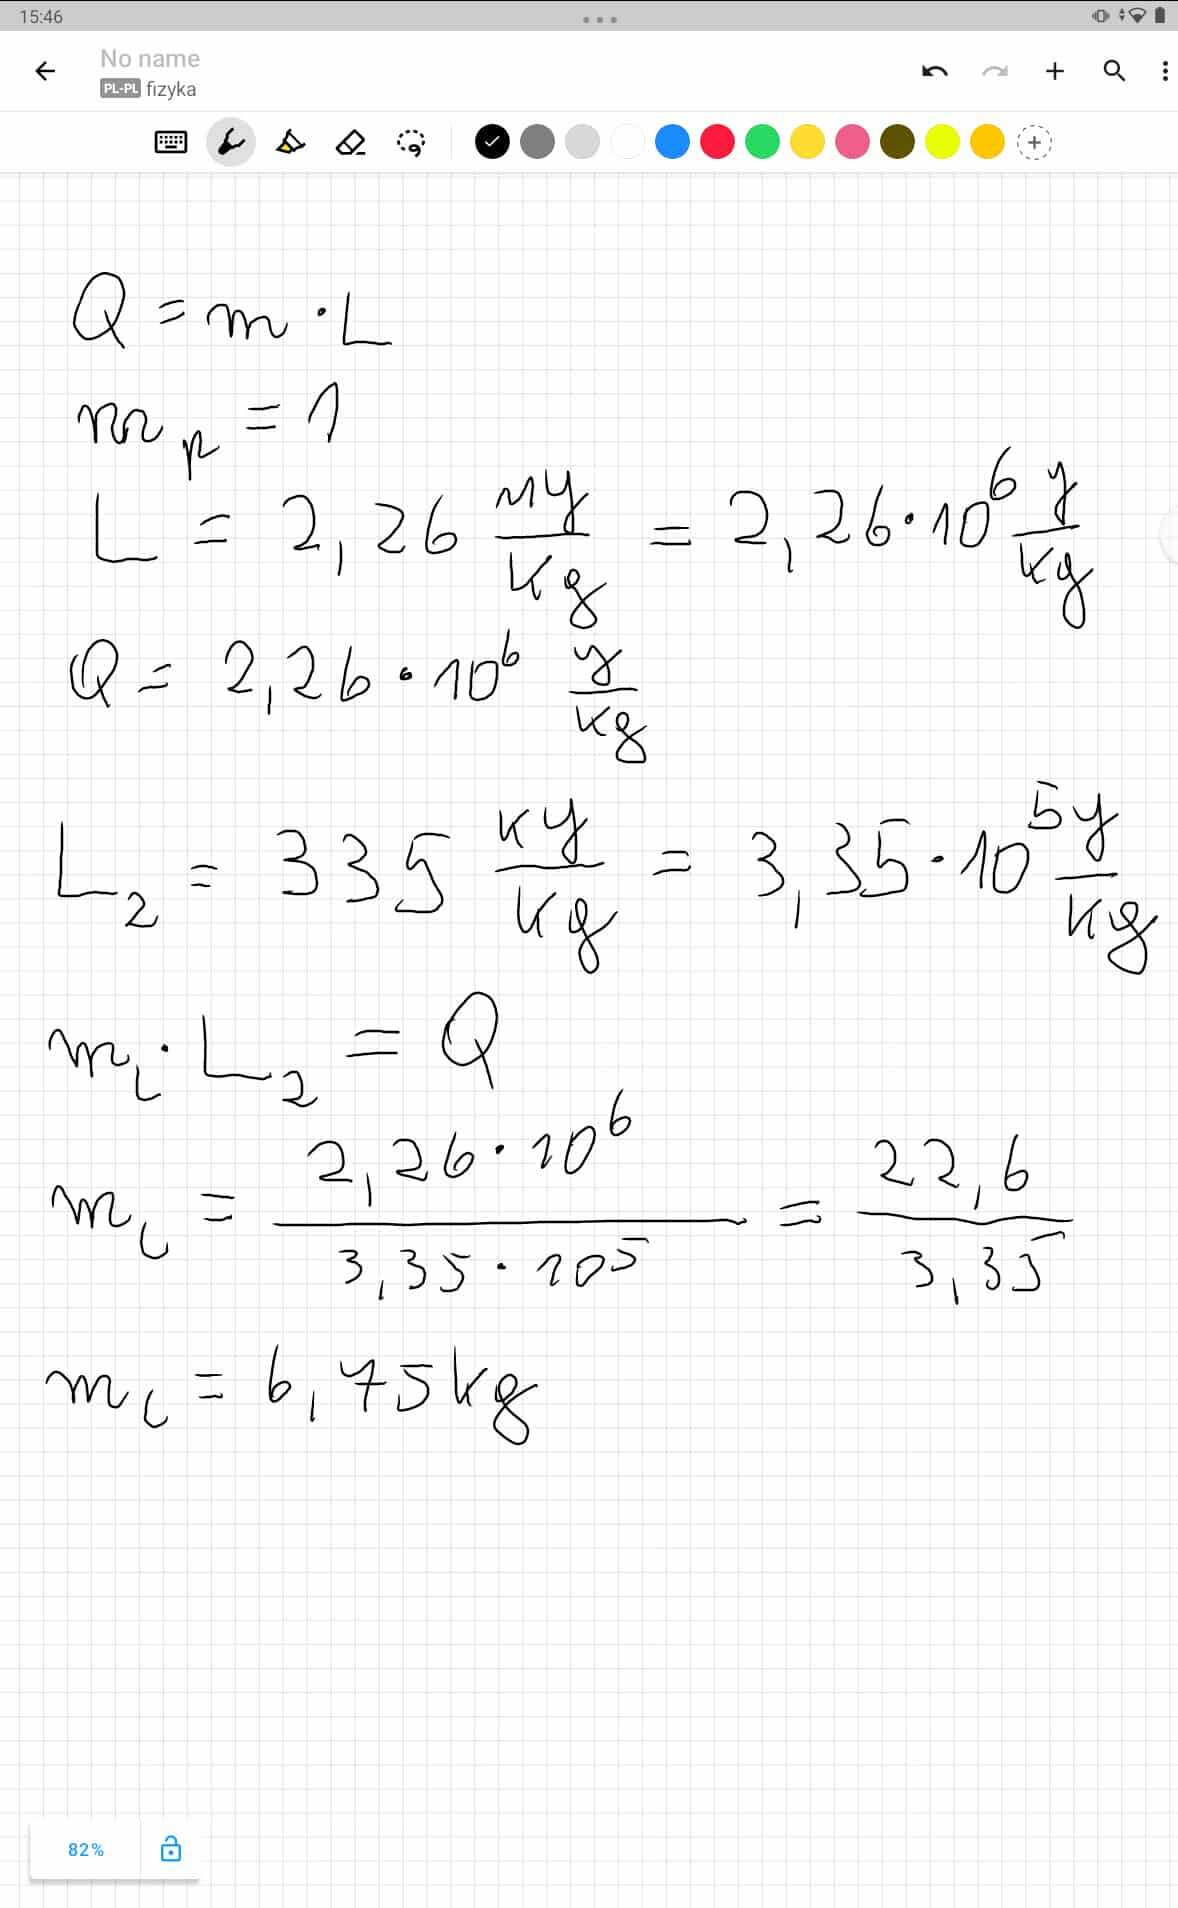 15:46
No name
PL-PL fizyka
Q = m · L
m_p = 1
L = 2,26 MJ/kg = 2,26 · 10^6 J/kg
Q = 2,26 · 10^6 J/kg
L_2 = 335 kJ/kg = 3,35 · 10^5 J/kg
m_L · L_2 = Q
m_L = 2,26 · 10^6 / 3,35 · 10^5 = 22,6 / 3,35
m_L = 6,75 kg
82%